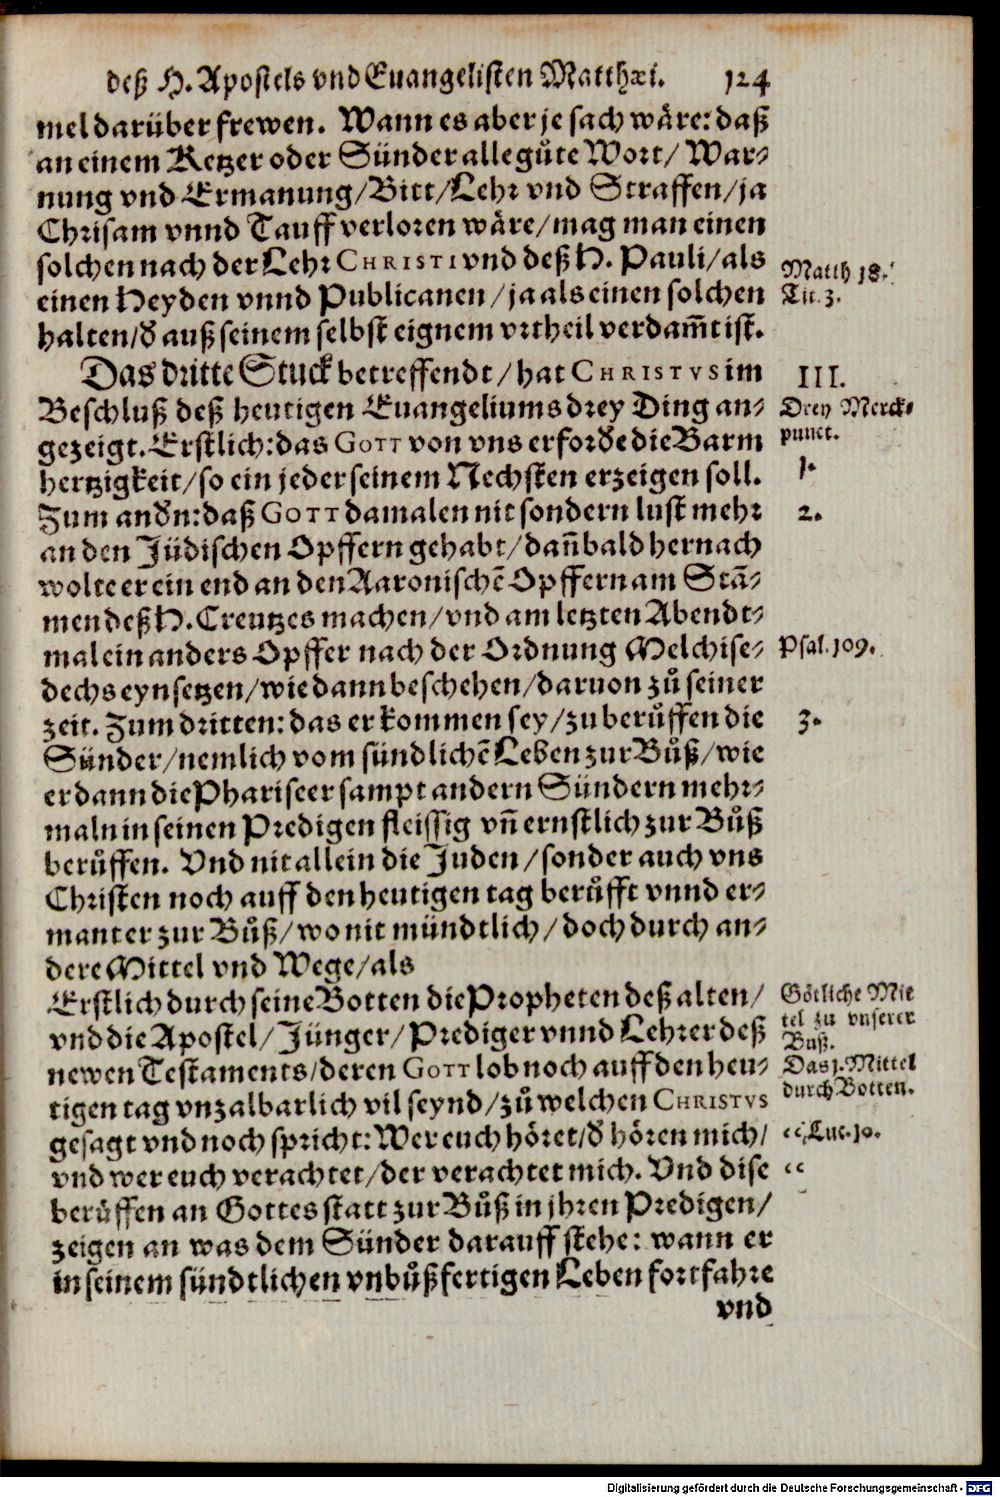 deß H. Apostels vnd Euangelisten Matthæi. 124
mel darüber frewen. Wann es aber je sach wäre: daß
an einem Ketzer oder Sünder alle gůte Wort/ War-
nung vnd Ermanung/ Bitt/ Lehr vnd Straffen/ ja
Chrisam vnnd Tauff verloren wäre/ mag man einen
solchen nach der Lehr CHRISTI vnd deß H. Pauli/ als
Matth 18.
einen Heyden vnnd Publicanen/ ja als einen solchen
Tit. 3.
halten/ đ auß seinem selbst eignem vrtheil verdam̃t ist.
Das dritte Stuck betreffendt/ hat CHRISTVS im
III.
Beschluß deß heutigen Euangeliums drey Ding an-
Drey Merck-
gezeigt. Erstlich: das GOTT von vns erforđe die Barm
punct.
hertzigkeit/ so ein jeder seinem Nechsten erzeigen soll.
1.
Zum anđn: daß GOTT damalen nit sondern lust mehr
2.
an den Jüdischen Opffern gehabt/ dan̄ bald hernach
wolte er ein end an den Aaronischē Opffern am Stā-
men deß H. Creutzes machen/ vnd am letzten Abendt-
mal ein anders Opffer nach der Ordnung Melchise-
Psal. 109.
dechs eynsetzen/ wie dann beschehen/ daruon zů seiner
zeit. Zum dritten: das er kommen sey/ zu berůffen die
3.
Sünder/ nemlich vom sündlichē Leben zur Bůß/ wie
er dann die Phariseer sampt andern Sündern mehr-
maln in seinen Predigen fleissig vn̄ ernstlich zur Bůß
berůffen. Vnd nit allein die Juden/ sonder auch vns
Christen noch auff den heutigen tag berůfft vnnd er-
mant er zur Bůß/ wo nit mündtlich/ doch durch an-
dere Mittel vnd Wege/ als
Erstlich durch seine Botten die Propheten deß alten/
Götliche Mit
vnd die Apostel/ Jünger/ Prediger vnnd Lehrer deß
tel zu vnserer
Buß.
newen Testaments/ deren GOTT lob noch auff den heu-
Das 1. Mittel
tigen tag vnzalbarlich vil seynd/ zů welchen CHRISTVS
durch Botten.
gesagt vnd noch spricht: Wer euch höret/ đ hören mich/
“ Luc. 10.
vnd wer euch verachtet/ der verachtet mich. Vnd dise
“
berůffen an Gottes statt zur Bůß in jhren Predigen/
zeigen an was dem Sünder darauff stehe: wann er
in seinem sündtlichen vnbůßfertigen Leben fortfahre
vnd
Digitalisierung gefördert durch die Deutsche Forschungsgemeinschaft - DFG